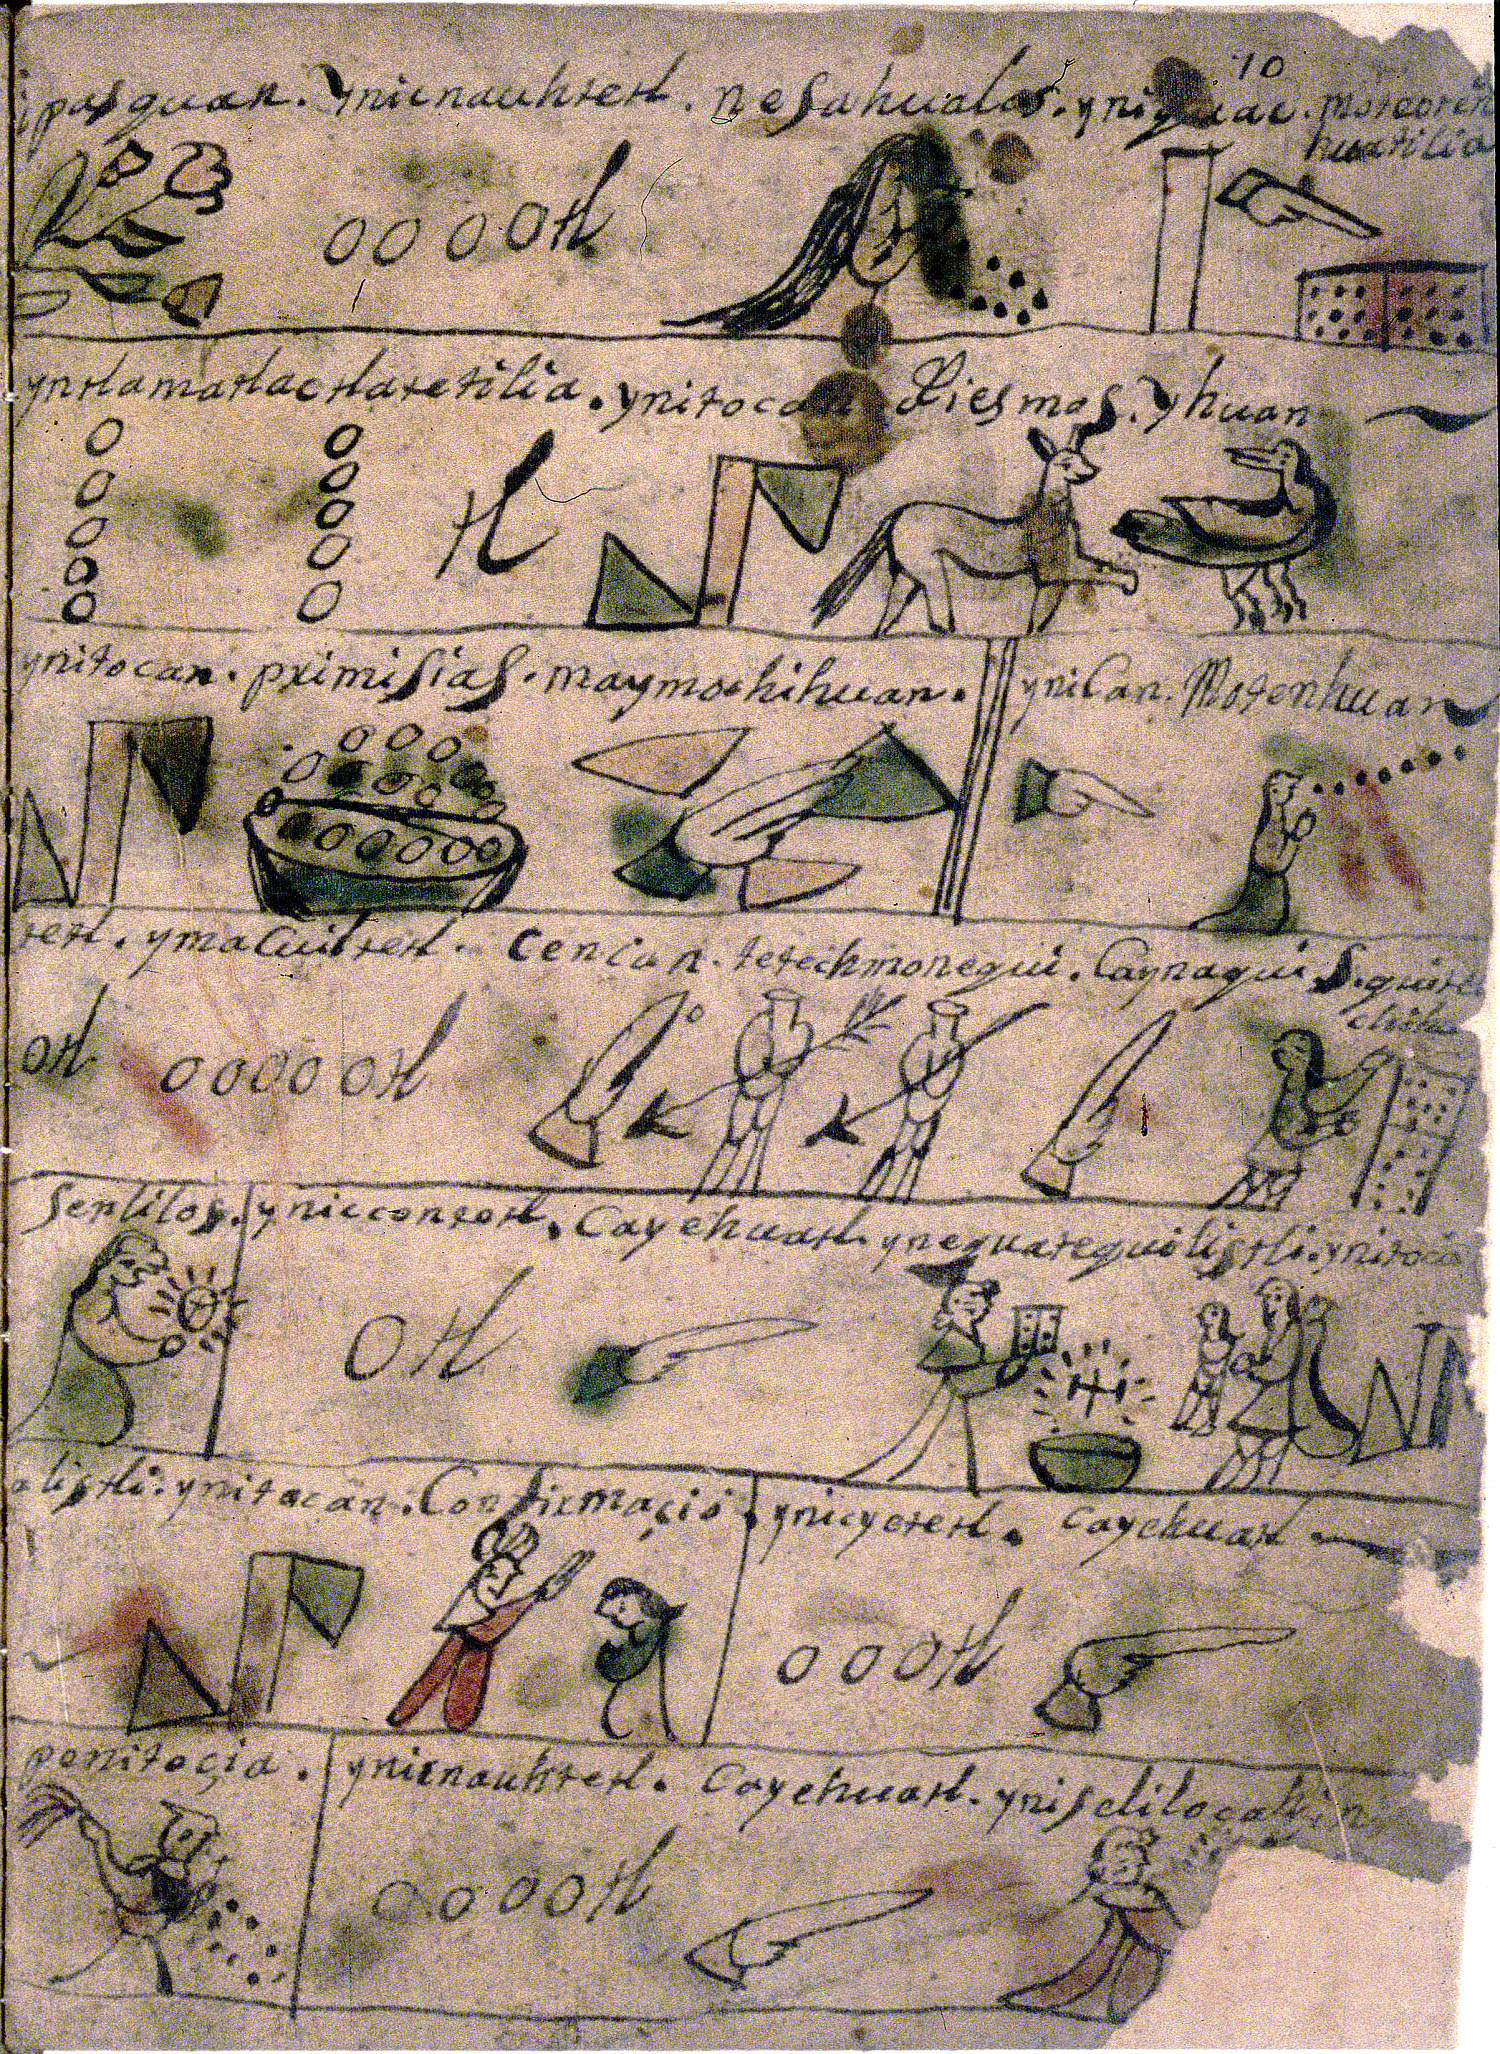 10
ipasquan. ynicnauhtetl. nesahualos. yniquac. moteotih
huatilia
yntlamatlactlatetilia. ynitocan Diesmos. yhuan
ynitocan. primisias. maymochihuan. ynican. Motenhuan
tetl. ymacuiltetl. cencan. tetechmonequi. Caynaqui. S.quite
senlilos. yniccentetl. Cayehuatl. ynequatequilistli. ynitoca
alistli. ynitacan. Confirmaçio. ynicyetetl. cayehuatl
penitoçia. ynicnauhtetl. Cayehuatl. yniseliloca
oooo tl
tl
otl ooooo tl
o tl
ooo tl
oooo tl